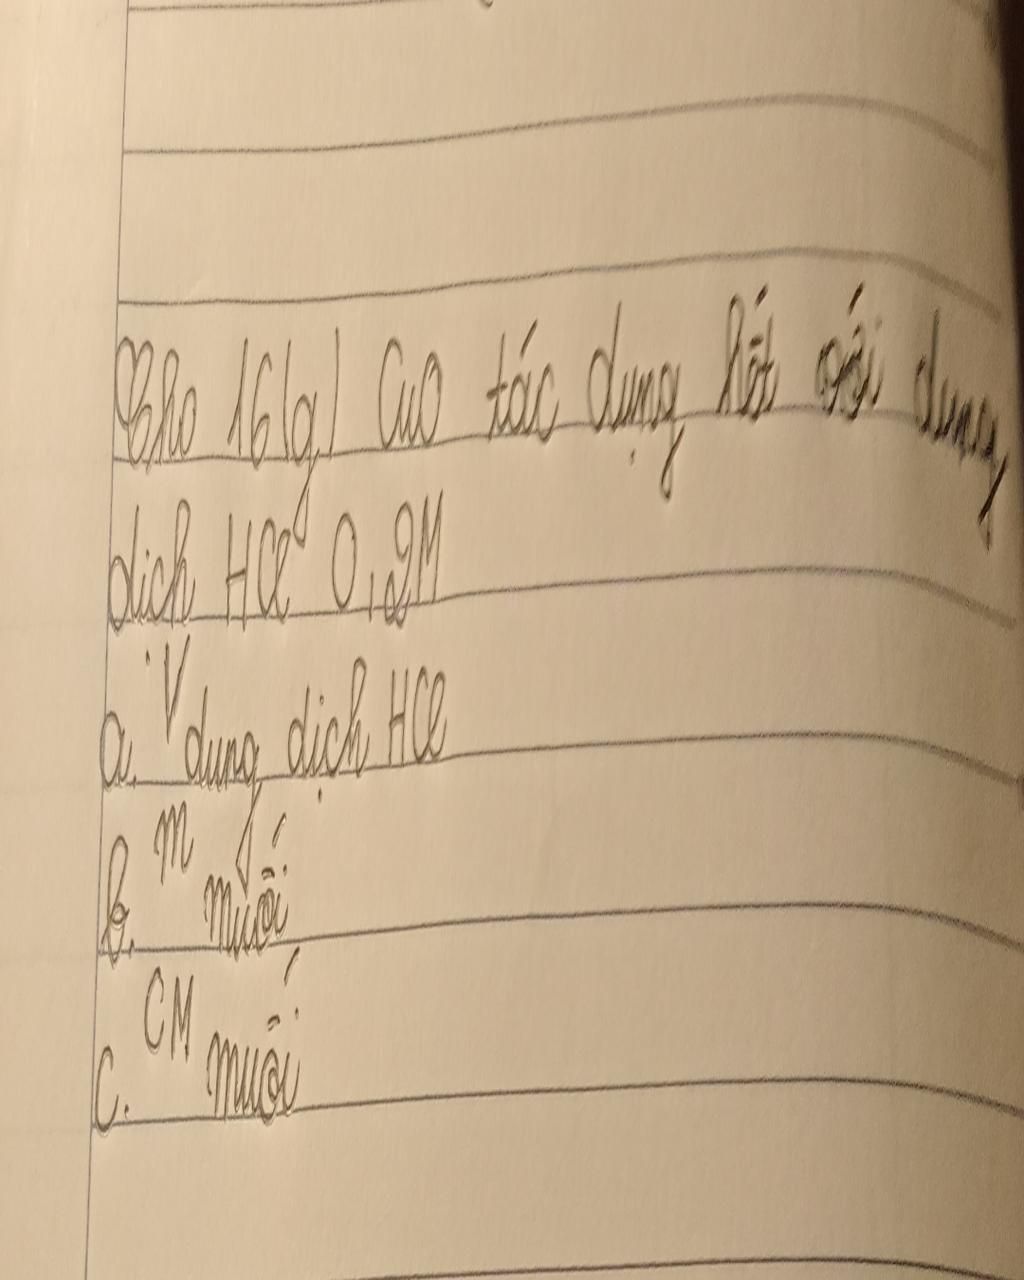 Cho 16(g) CuO tác dụng hết với dung
dịch HCl 0,2M
a. V dung dịch HCl
b. m muối
c. CM muối